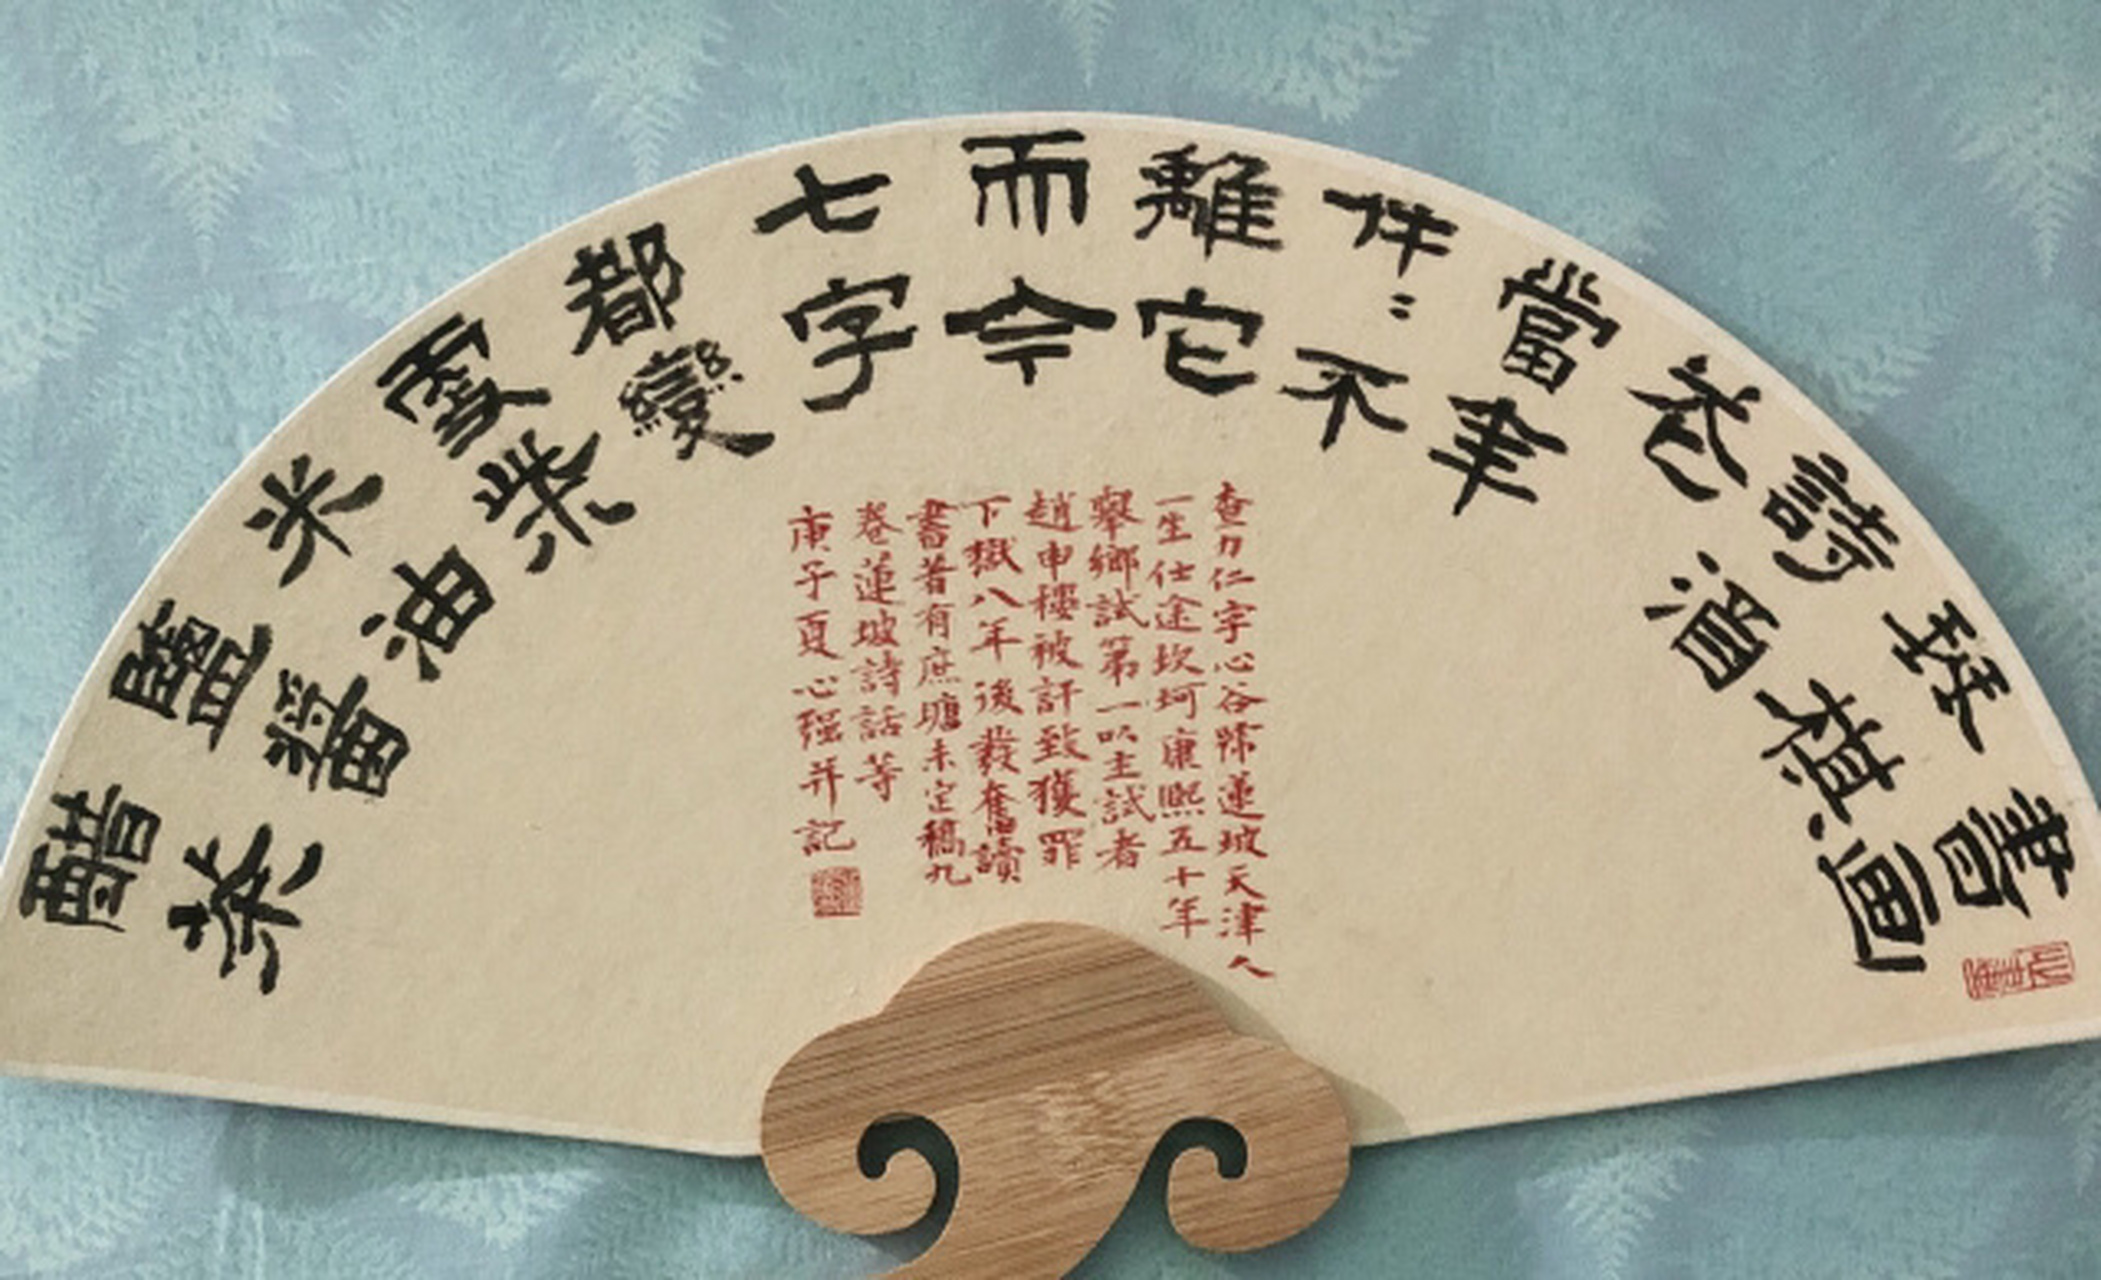 書画
琴棋
詩酒
花
當年
件=不
離它
而今
七字
都變
更柴
米油
鹽醬
醋茶
查为仁字心谷號蓮坡天津人
一生仕途坎坷康熙五十年
舉鄉試第一以主試者
趙申櫻被訐致獲罪
下獄八年後發奮讀
書著有庶塘未定稿九
卷蓮坡詩話等
庚子夏心强并記